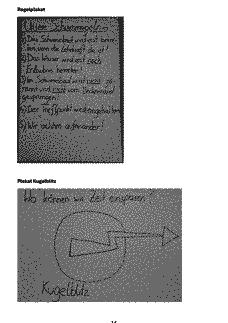 Regelplakat
Unsere Schwimmregeln
1) Das Schwimmbad wird erst betre-
ten, wenn die Lehrkraft da ist!
2) Das Wasser wird erst nach
Erlaubnis betreten!
3) Im Schwimmbad wird nicht ge-
rannt und nicht vom Beckenrand
gesprungen!
4) Der Treffpunkt wird eingehalten!
5) Wir achten aufeinander!
Plakat Kugelblitz
Wo können wir Zeit einsparen?
Kugelblitz